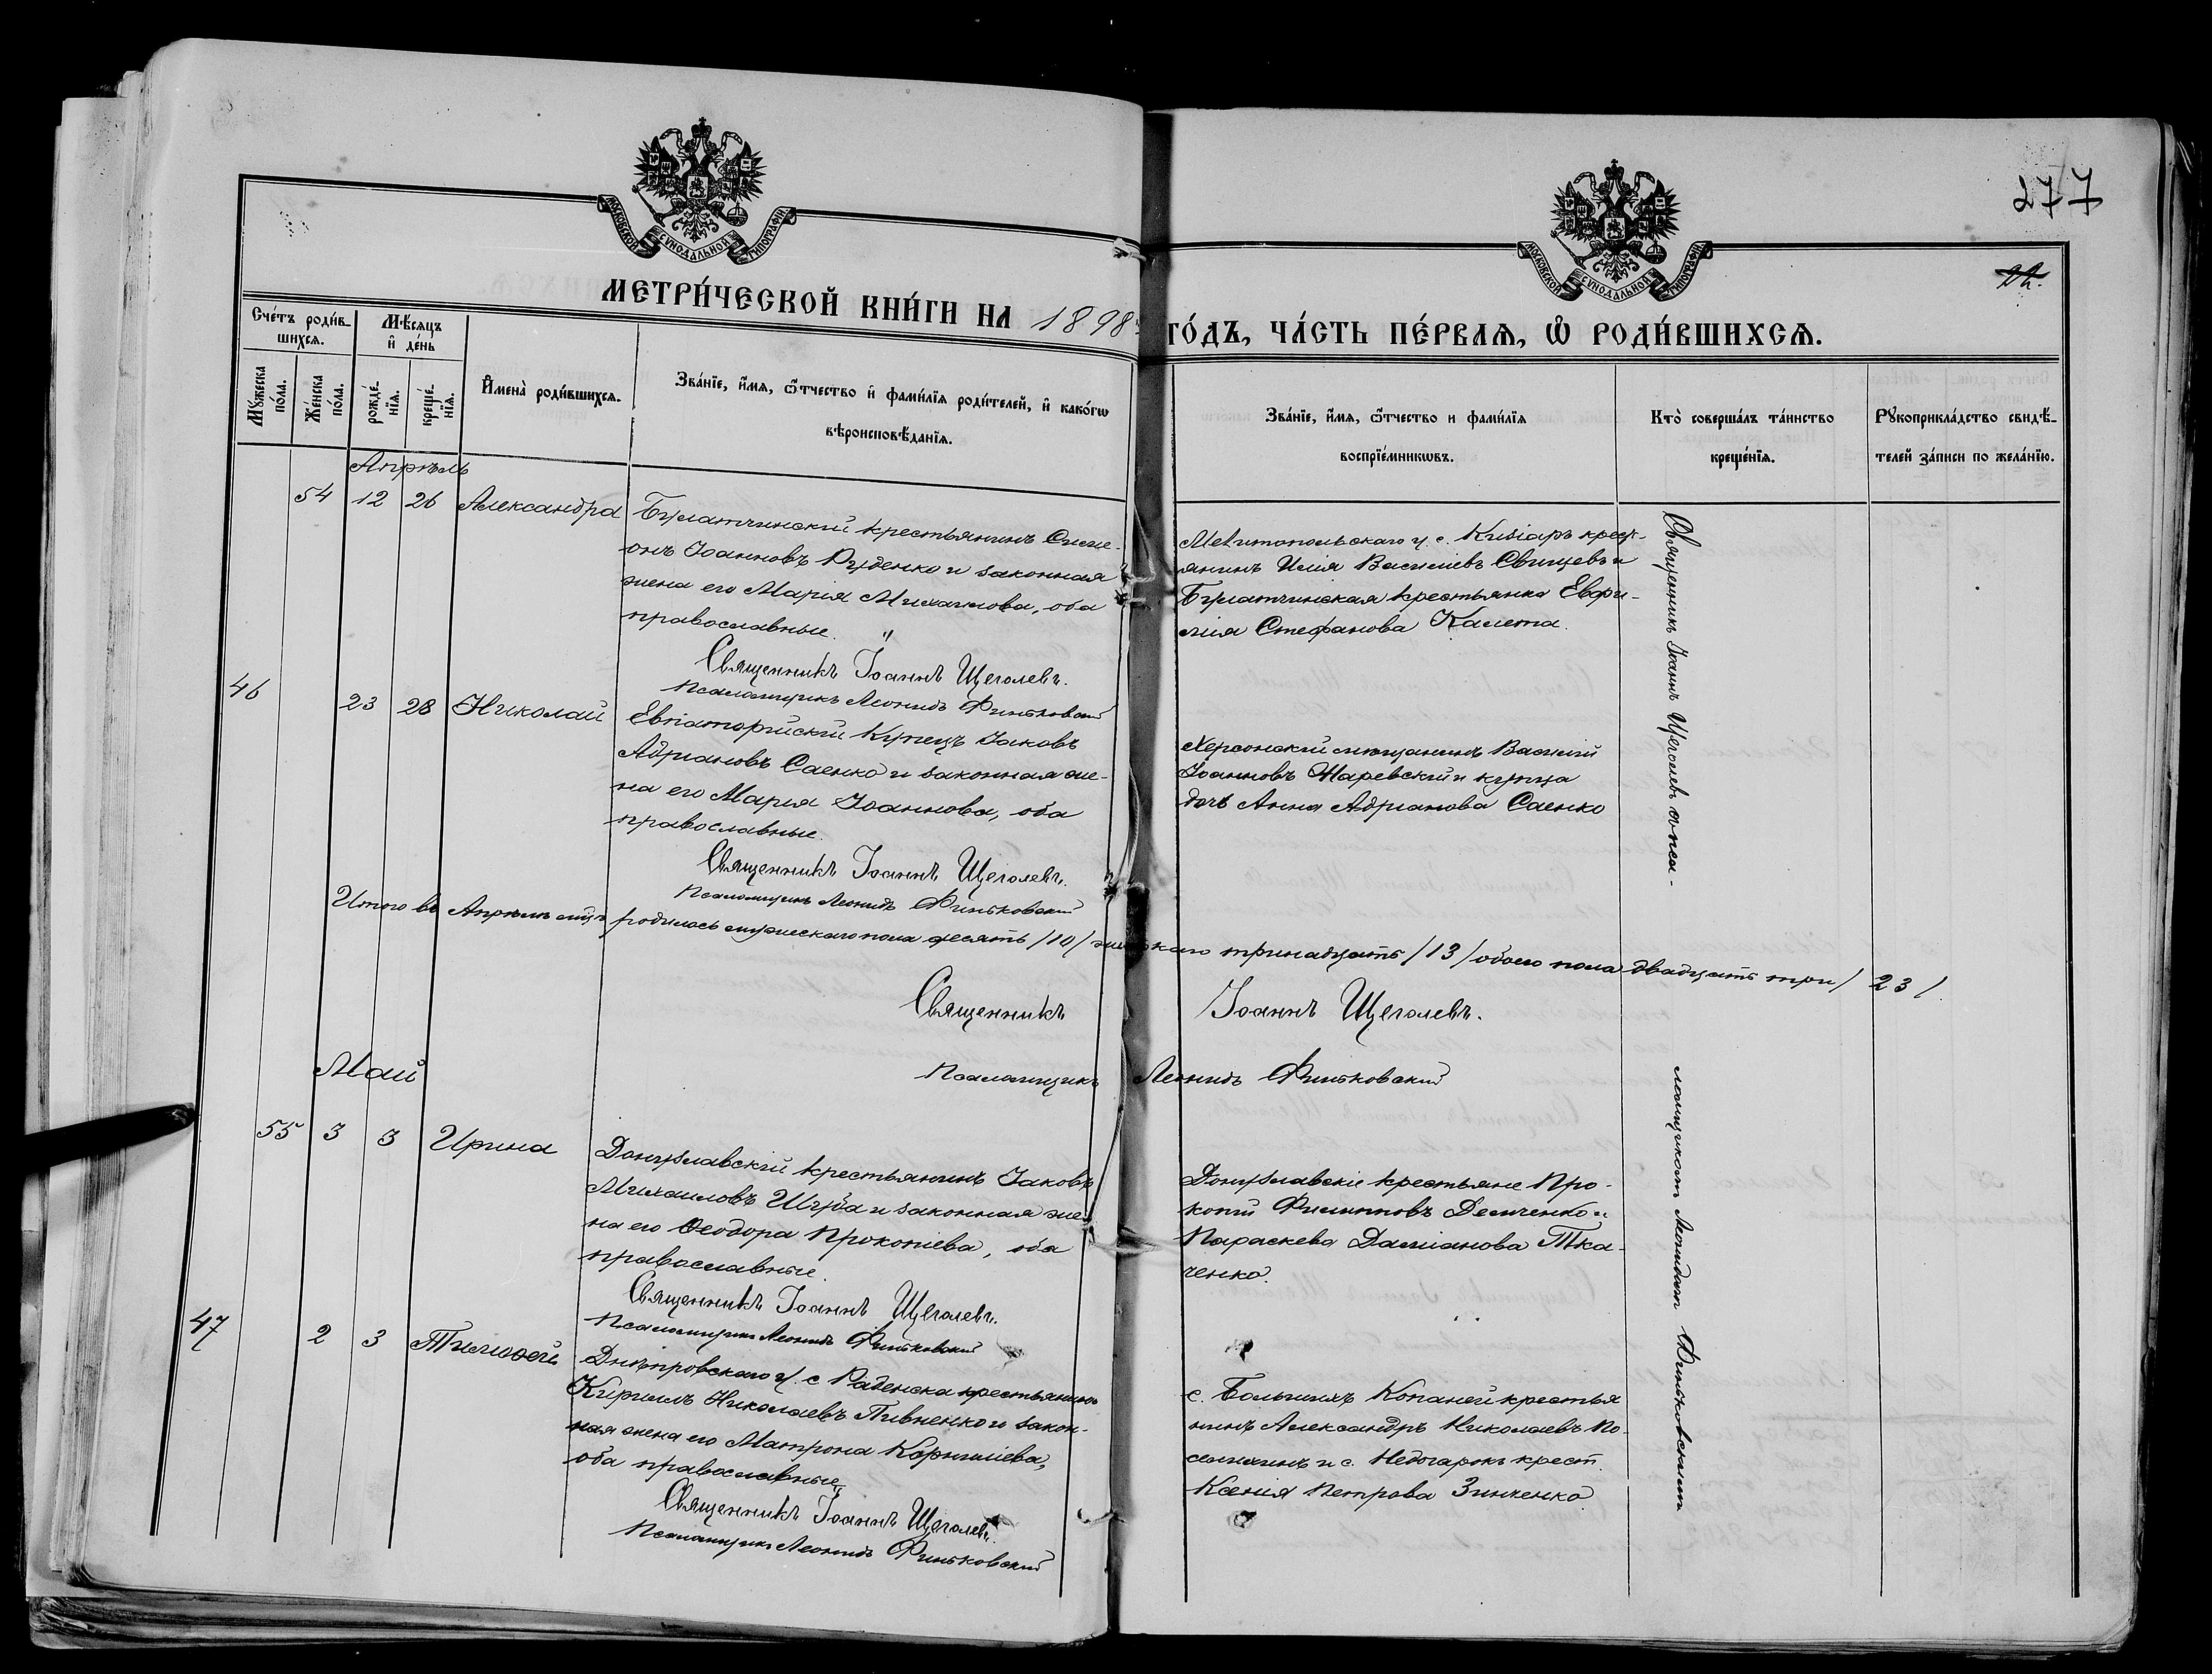 277
МОСКОВСКОЙ СУНОДАЛЬНОЙ ТИПОГРАФІИ
МОСКОВСКОЙ СУНОДАЛЬНОЙ ТИПОГРАФІИ
МЕТРИ́ЧЕСКОЙ КНИ́ГИ НА 1898 ГО́ДЪ, ЧА́СТЬ ПЕ́РВАЯ, Ѡ РОДИ́ВШИХСЯ.
Сче́тъ роди́в-
шихся.
Мѣ́сяцъ
и҆ де́нь
Мꙋ́жеска по́ла.
Же́нска по́ла.
рожде́нїя.
креще́нїя.
И҆мена̀ роди́вшихся.
Зва́нїе, и҆́мя, ѻ҆́тчество и҆ фами́лїя роди́телей, и҆ како́гѡ
вѣроисповѣ́данїя.
Зва́нїе, и҆́мя, ѻ҆́тчество и фами́лїя
воспрїе́мникѡвъ.
Кто̀ соверша́лъ та́инство
креще́нїя.
Рꙋкоприкла́дство свидѣ́-
телей за́писи по жела́нїю.
Апрѣль
54 12 26 Александра
Булатчинскій крестьянинъ Симе-
онъ Іоанновъ Руденко и законная
жена его Марія Михаилова, оба
православные.
Священникъ Іоаннъ Щеголевъ.
Псаломщикъ Леонидъ Финьковскій
Мелитопольскаго у. с. Кизіаръ крест-
янинъ Илія Василіевъ Свинцевъ и
Булатчинская крестьянка Евфи-
мія Стефанова Калета.
46 23 28 Николай
Евпаторійскій Купецъ Іаковъ
Адриановъ Саенко и законная же-
на его Марія Іоаннова, оба
православные.
Священникъ Іоаннъ Щеголевъ.
Псаломщикъ Леонидъ Финьковскій
Херсонскій мѣщанинъ Василій
Іоанновъ Жаревскій и купца
дочь Анна Адрианова Саенко
Итого въ Апрѣлѣ мцѣ родилось мужескаго пола десять /10/ женскаго тринадцать /13/ обоего пола двадцать три / 23 /.
Священникъ Іоаннъ Щеголевъ.
Псаломщикъ Леонидъ Финьковскій
Май
55 3 3 Ирина
Донузлавскій крестьянинъ Іаковъ
Михаиловъ Шуба и законная же-
на его Ѳеодора Прокопіева, оба
православные.
Священникъ Іоаннъ Щеголевъ.
Псаломщикъ Леонидъ Финьковскій
Донузлавскіе крестьяне Про-
копій Филипповъ Демченко и
Параскева Даміанова Тка-
ченко.
47 2 3 Тимоѳей
Днѣпровскаго у. с. Раденска крестьянинъ
Кириллъ Николаевъ Пивненко и закон-
ная жена его Матрона Корниліева,
оба православные
Священникъ Іоаннъ Щеголевъ.
Псаломщикъ Леонидъ Финьковскій
с. Большихъ Копаней крестья
нинъ Александръ Николаевъ По-
и с. крест.
Ксенія Петрова Зинченко
Священникъ Іоаннъ Щеголевъ съ псал-
ломщикомъ Леонидомъ Финьковскимъ